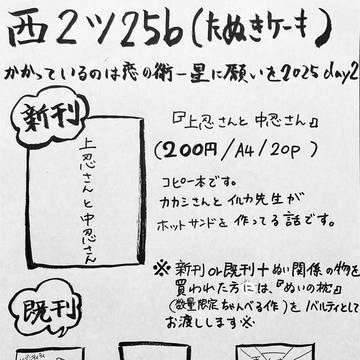 西2ツ25b(たぬきケーキ)
かかっているのは恋の術一星に願いを2025 day2
新刊
『上忍さんと中忍さん』
(200円/A4/20p)
上忍さんと中忍さん
コピー本です。
カカシさんとイルカ先生が
ホットサンドを作ってる話です。
※新刊or既刊+ぬい関係の物を
買われた方には、『ぬいの枕』
(数量限定ちゃんべる作)をノベルティとして
お渡します※
既刊